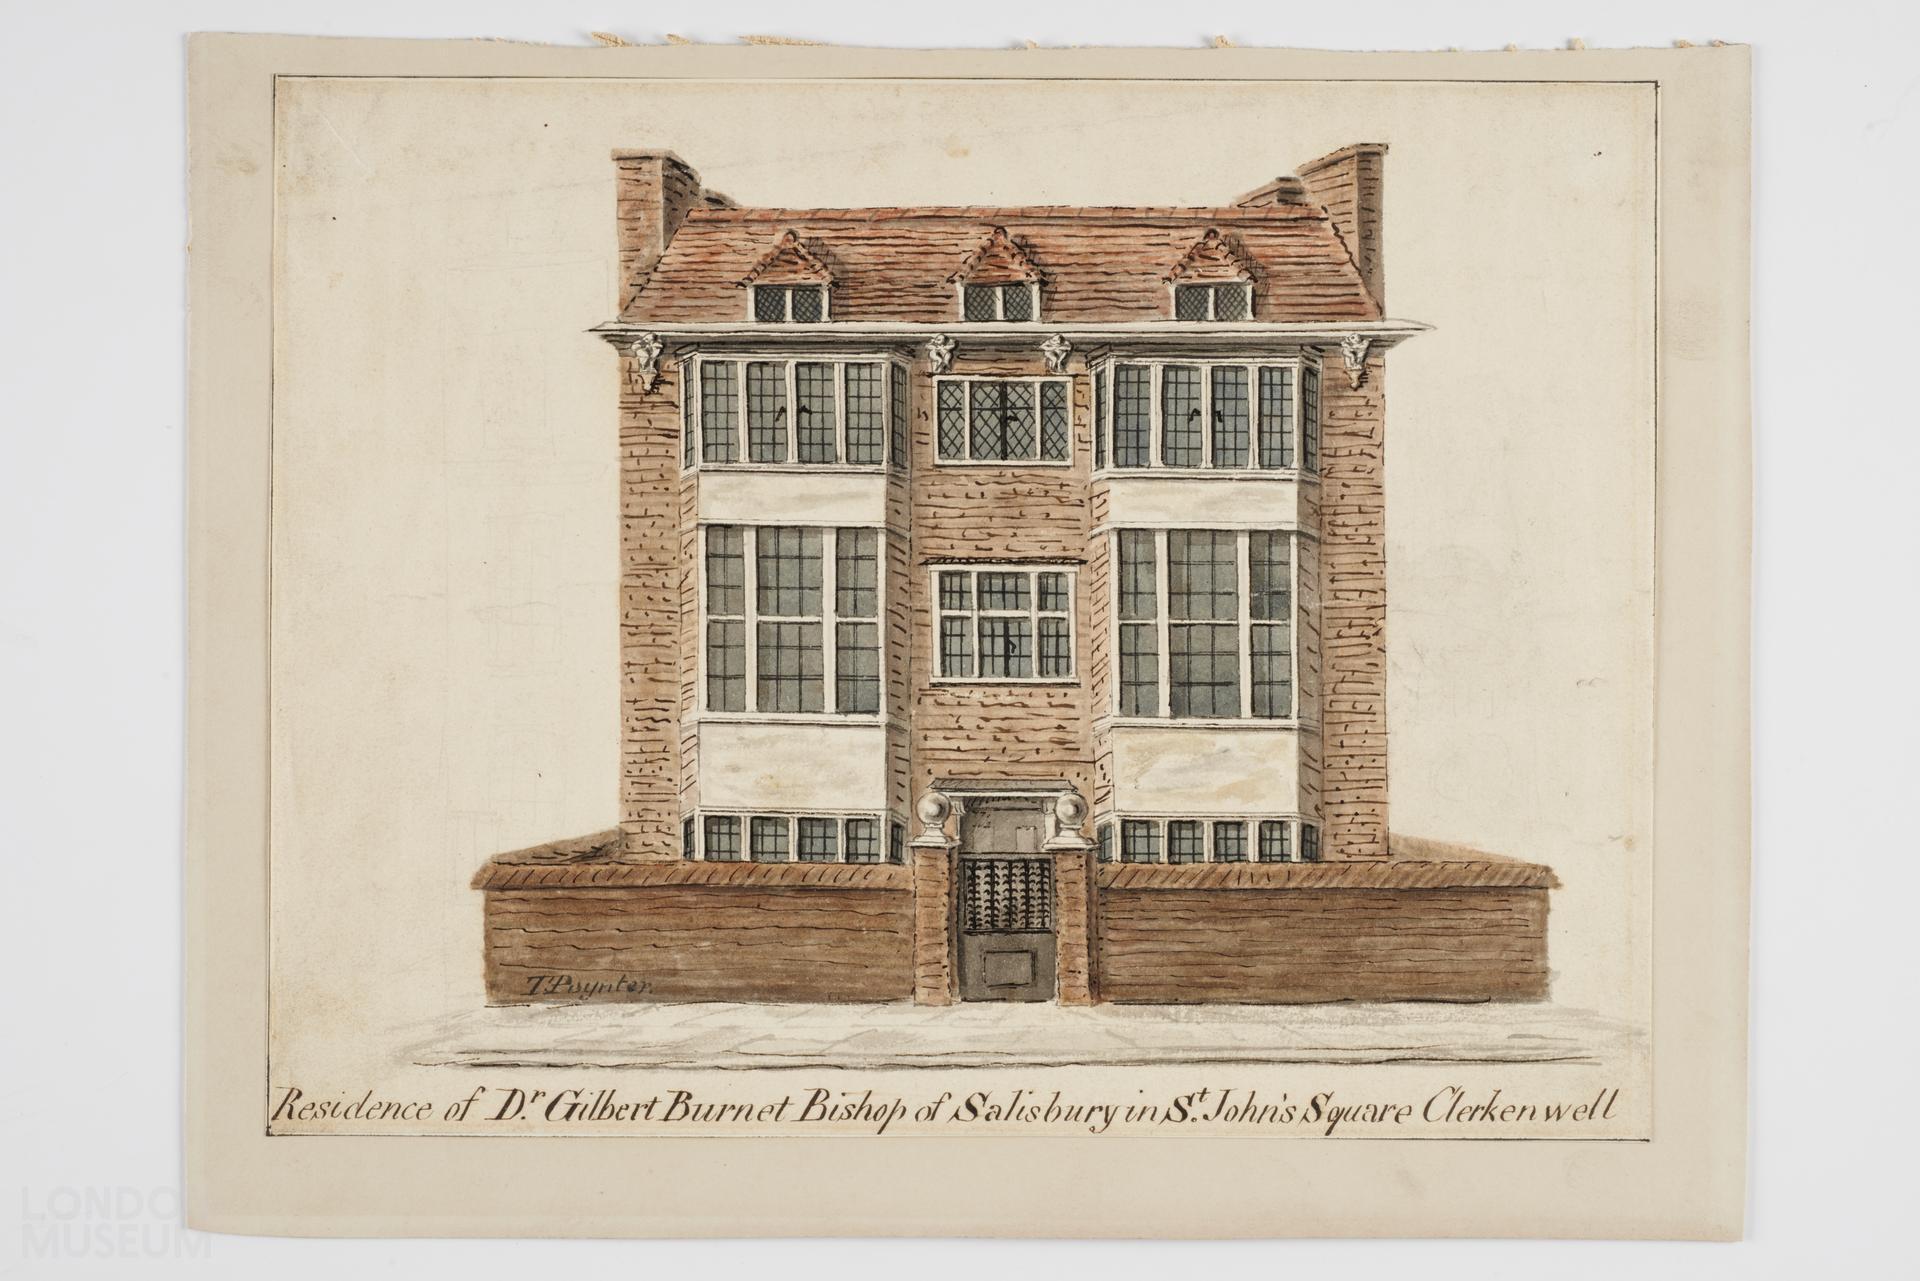 T. Poynter.
Residence of D.r Gilbert Burnet Bishop of Salisbury in S.t John's Square Clerkenwell
LONDON
MUSEUM